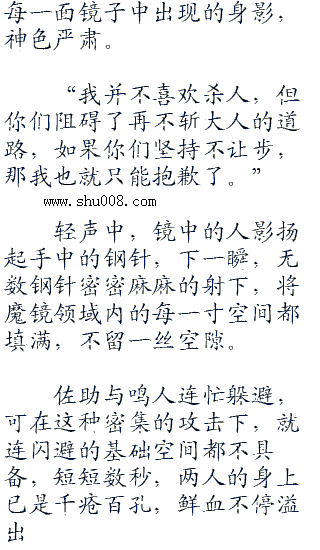 每一面镜子中出现的身影，
神色严肃。
“我并不喜欢杀人，但
你们阻碍了再不斩大人的道
路，如果你们坚持不让步，
那我也就只能抱歉了。”
www.shu008.com
轻声中，镜中的人影扬
起手中的钢针，下一瞬，无
数钢针密密麻麻的射下，将
魔镜领域内的每一寸空间都
填满，不留一丝空隙。
佐助与鸣人连忙躲避，
可在这种密集的攻击下，就
连闪避的基础空间都不具
备，短短数秒，两人的身上
已是千疮百孔，鲜血不停溢
出